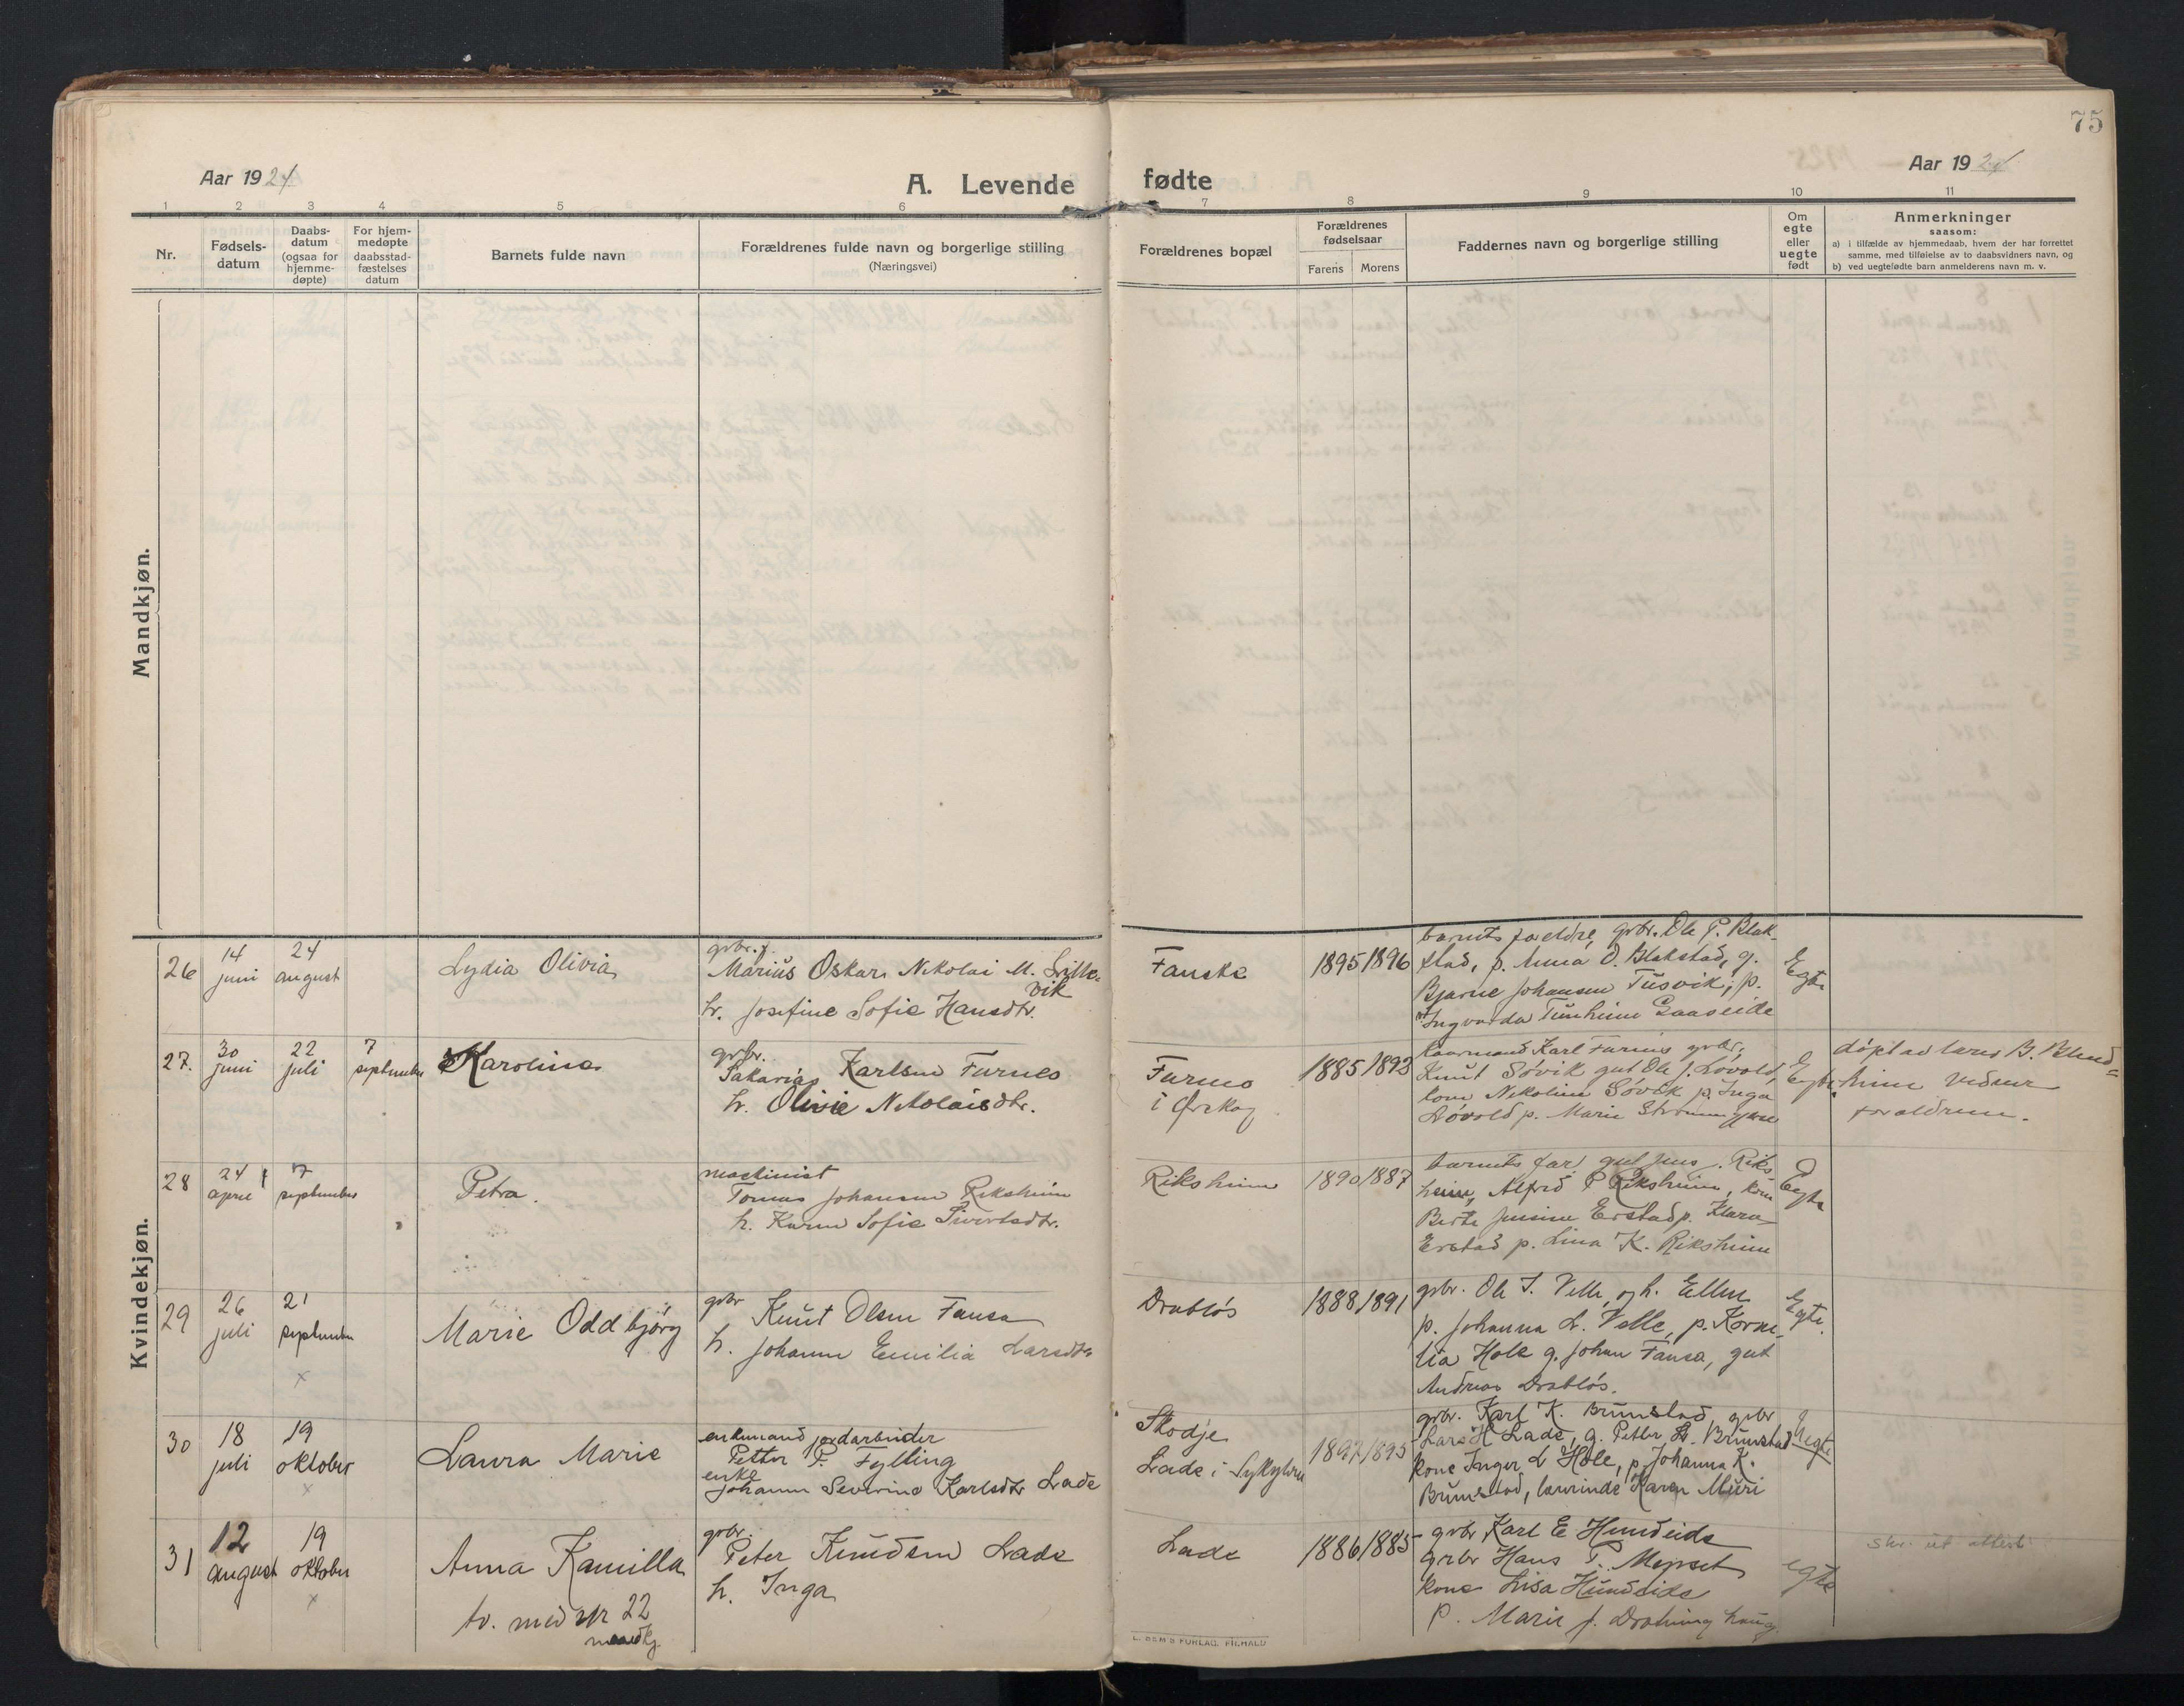 75
Aar 1924
A. Levende
fødte
Aar 1924
1 2 3 4 5 6 7 8 9 10 11
Nr.
Fødsels-
datum
Daabs-
datum
(ogsaa for
hjemme-
døpte)
For hjem-
medøpte
daabsstad-
fæstelses
datum
Barnets fulde navn
Forældrenes fulde navn og borgerlige stilling
(Næringsvei)
Forældrenes bopæl
Forældrenes
fødselsaar
Farens Morens
Faddernes navn og borgerlige stilling
Om
egte
eller
uegte
født
Anmerkninger
saasom:
a) i tilfælde av hjemmedaab, hvem der har forrettet
samme, med tilføielse av to daabsvidners navn, og
b) ved uegtefødte barn anmelderens navn m. v.
Mandkjøn.
Kvindekjøn.
26
14
juni
24
august
Lydia Olivia
grbr.
Marius Oskar Nikolai M. Lille-
vik
h. Josefine Sofie Hansdtr.
Fauske
1895 1896
barnets foreldre, grbr. Ole P. Blak-
stad, p. Anna O. Blakstad, g.
Bjarne Johansen Tusvik, p.
Ingvarda Gaaseide
Egte
27.
30
juni
22
juli
7
september
Karoline
grbr.
Sakarias Karlsen Furnes
h. Olivie Nikolaisdtr.
Furnes
i Ørskog
1885 1893
Kaarmand Karl Furnes grbr.
Knut Søvik gut Ole J. Løvold,
kone Nikoline Søvik p. Inga
Løvold p. Marie
Egte
døpt av lærer B. Blind-
heim
foraldrene.
28
24
april
7
september
Petra.
maskinist
Tomas Johansen Riksheim
h. Karen Sofie Sivertsdtr.
Riksheim
1890 1887
barnets far, gut Jens J. Riks
heim, Alfred P Riksheim, kone
Berte Jensine Erstad p. Klara
Erstad p. Lina K. Riksheim
Egte
29
26
juli
21
september
x
Marie Oddbjørg
grbr
Knut Olsen Fausa
h. Johanne Emilia Larsdtr
Drabløs
1888 1891
grbr. Ole I. Velle, og h. Ellen
p. Johanna L. Velle, p. Korne-
lia Hole g. Johan Fausa, gut
Andreas Drabløs.
Egte.
30
18
juli
19
oktober
x
Laura Marie
enkemand jordarbeider
Petter P. Fylling
enke
Johanne Severine Karlsdtr Lade
Skodje
Lade i Sykylven
1897 1895
grbr. Karl K. Brunstad, grbr
Lars H Lade, g. Petter Brunstad
kone Inger L Hole, p. Johanna K.
Brunstad, lærerinde Karen Muri
Uegte
31
12
august
19
oktober
x
Anna Kamilla
tv. med nr 22
mandkj.
grbr.
Peter Knudsen Lade
h. Inga
Lade
1886 1885
grbr Karl E Hundeide
grbr Hans P. Mepset
kone Lisa Hundeide
p. Marie J. Drotninghaug.
egte
skr. ut attest